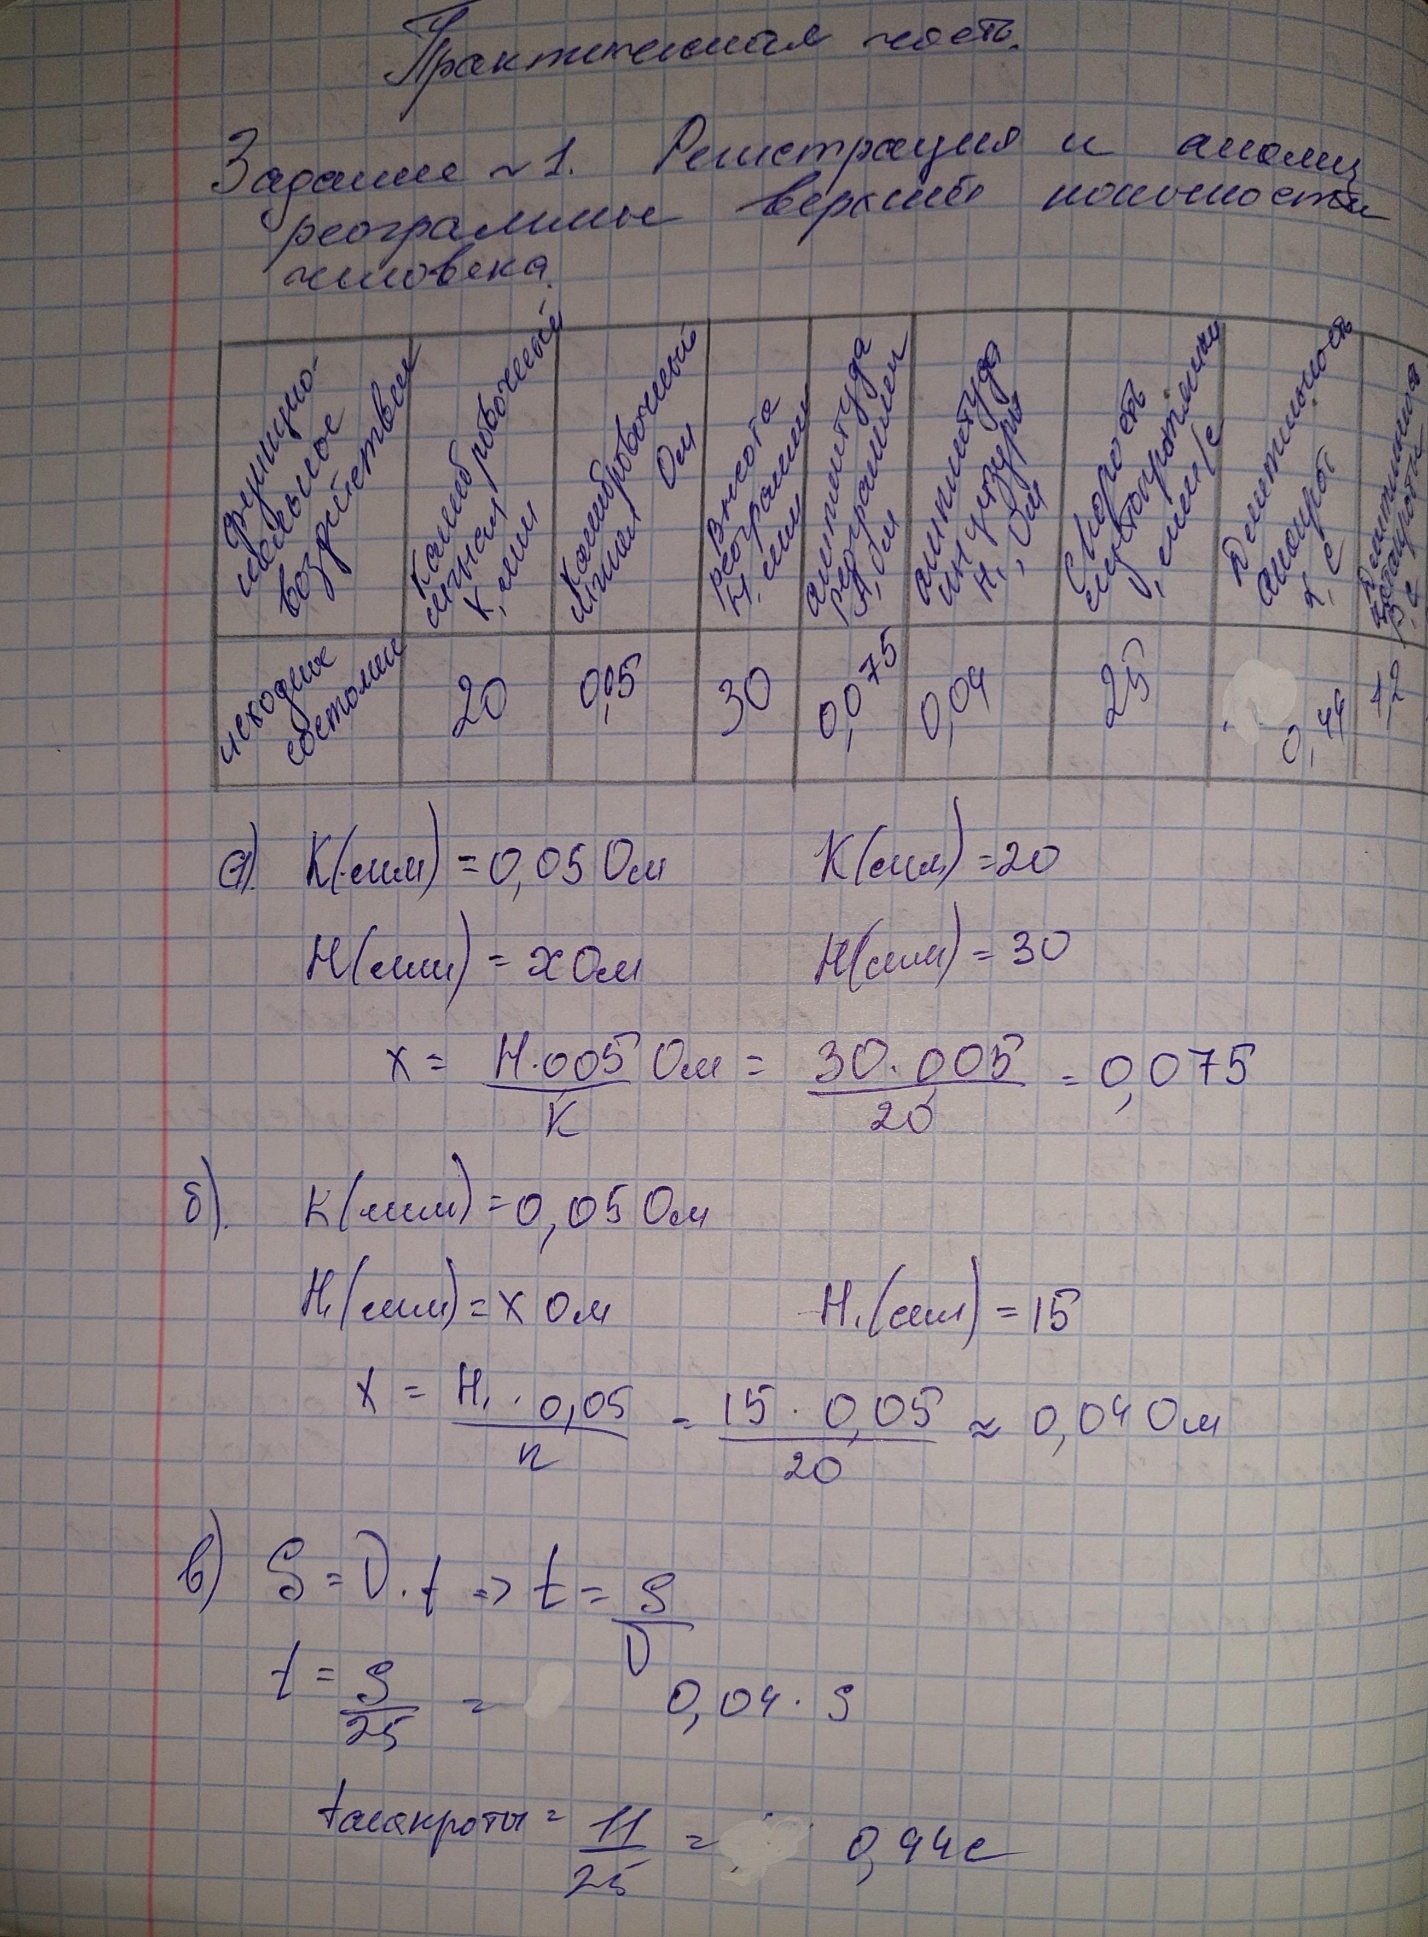 Практическая часть.
Задание ~1. Регистрация и анализ
реограммы верхней конечности
человека.
Функцио-
нальное
воздействие
Калибровочный
сигнал
К, мм
Калибровочный
сигнал Ом
Высота
реограммы
Н, мм
амплитуда
реограммы
А, Ом
амплитуда
инцизуры
Н₁, Ом
Скорость
лентопротяжки
υ, мм/с
Длительность
анакроты
α, с
Длительность
катакроты
β, с
исходное
состояние
20
0,05
30
0,075
0,04
25
0,44
1,2
а). К(мм) = 0,05 Ом К(мм) = 20
Н(мм) = х Ом Н(мм) = 30
х = Н·0,05 Ом / К = 30·0,05 / 20 = 0,075
б). К(мм) = 0,05 Ом
Н₁(мм) = х Ом Н₁(мм) = 15
х = Н₁ · 0,05 / К = 15 · 0,05 / 20 ≈ 0,04 Ом
в) S = υ · t => t = S / υ
t = S / 25 = 0,04 · S
tанакроты = 11 / 25 = 0,44 с